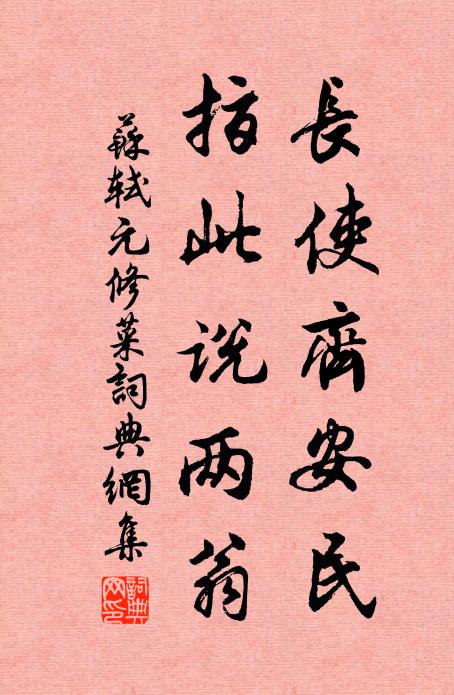 長使齊安民
指此說两翁
蘇軾元修菜詞典網集
詞典网印